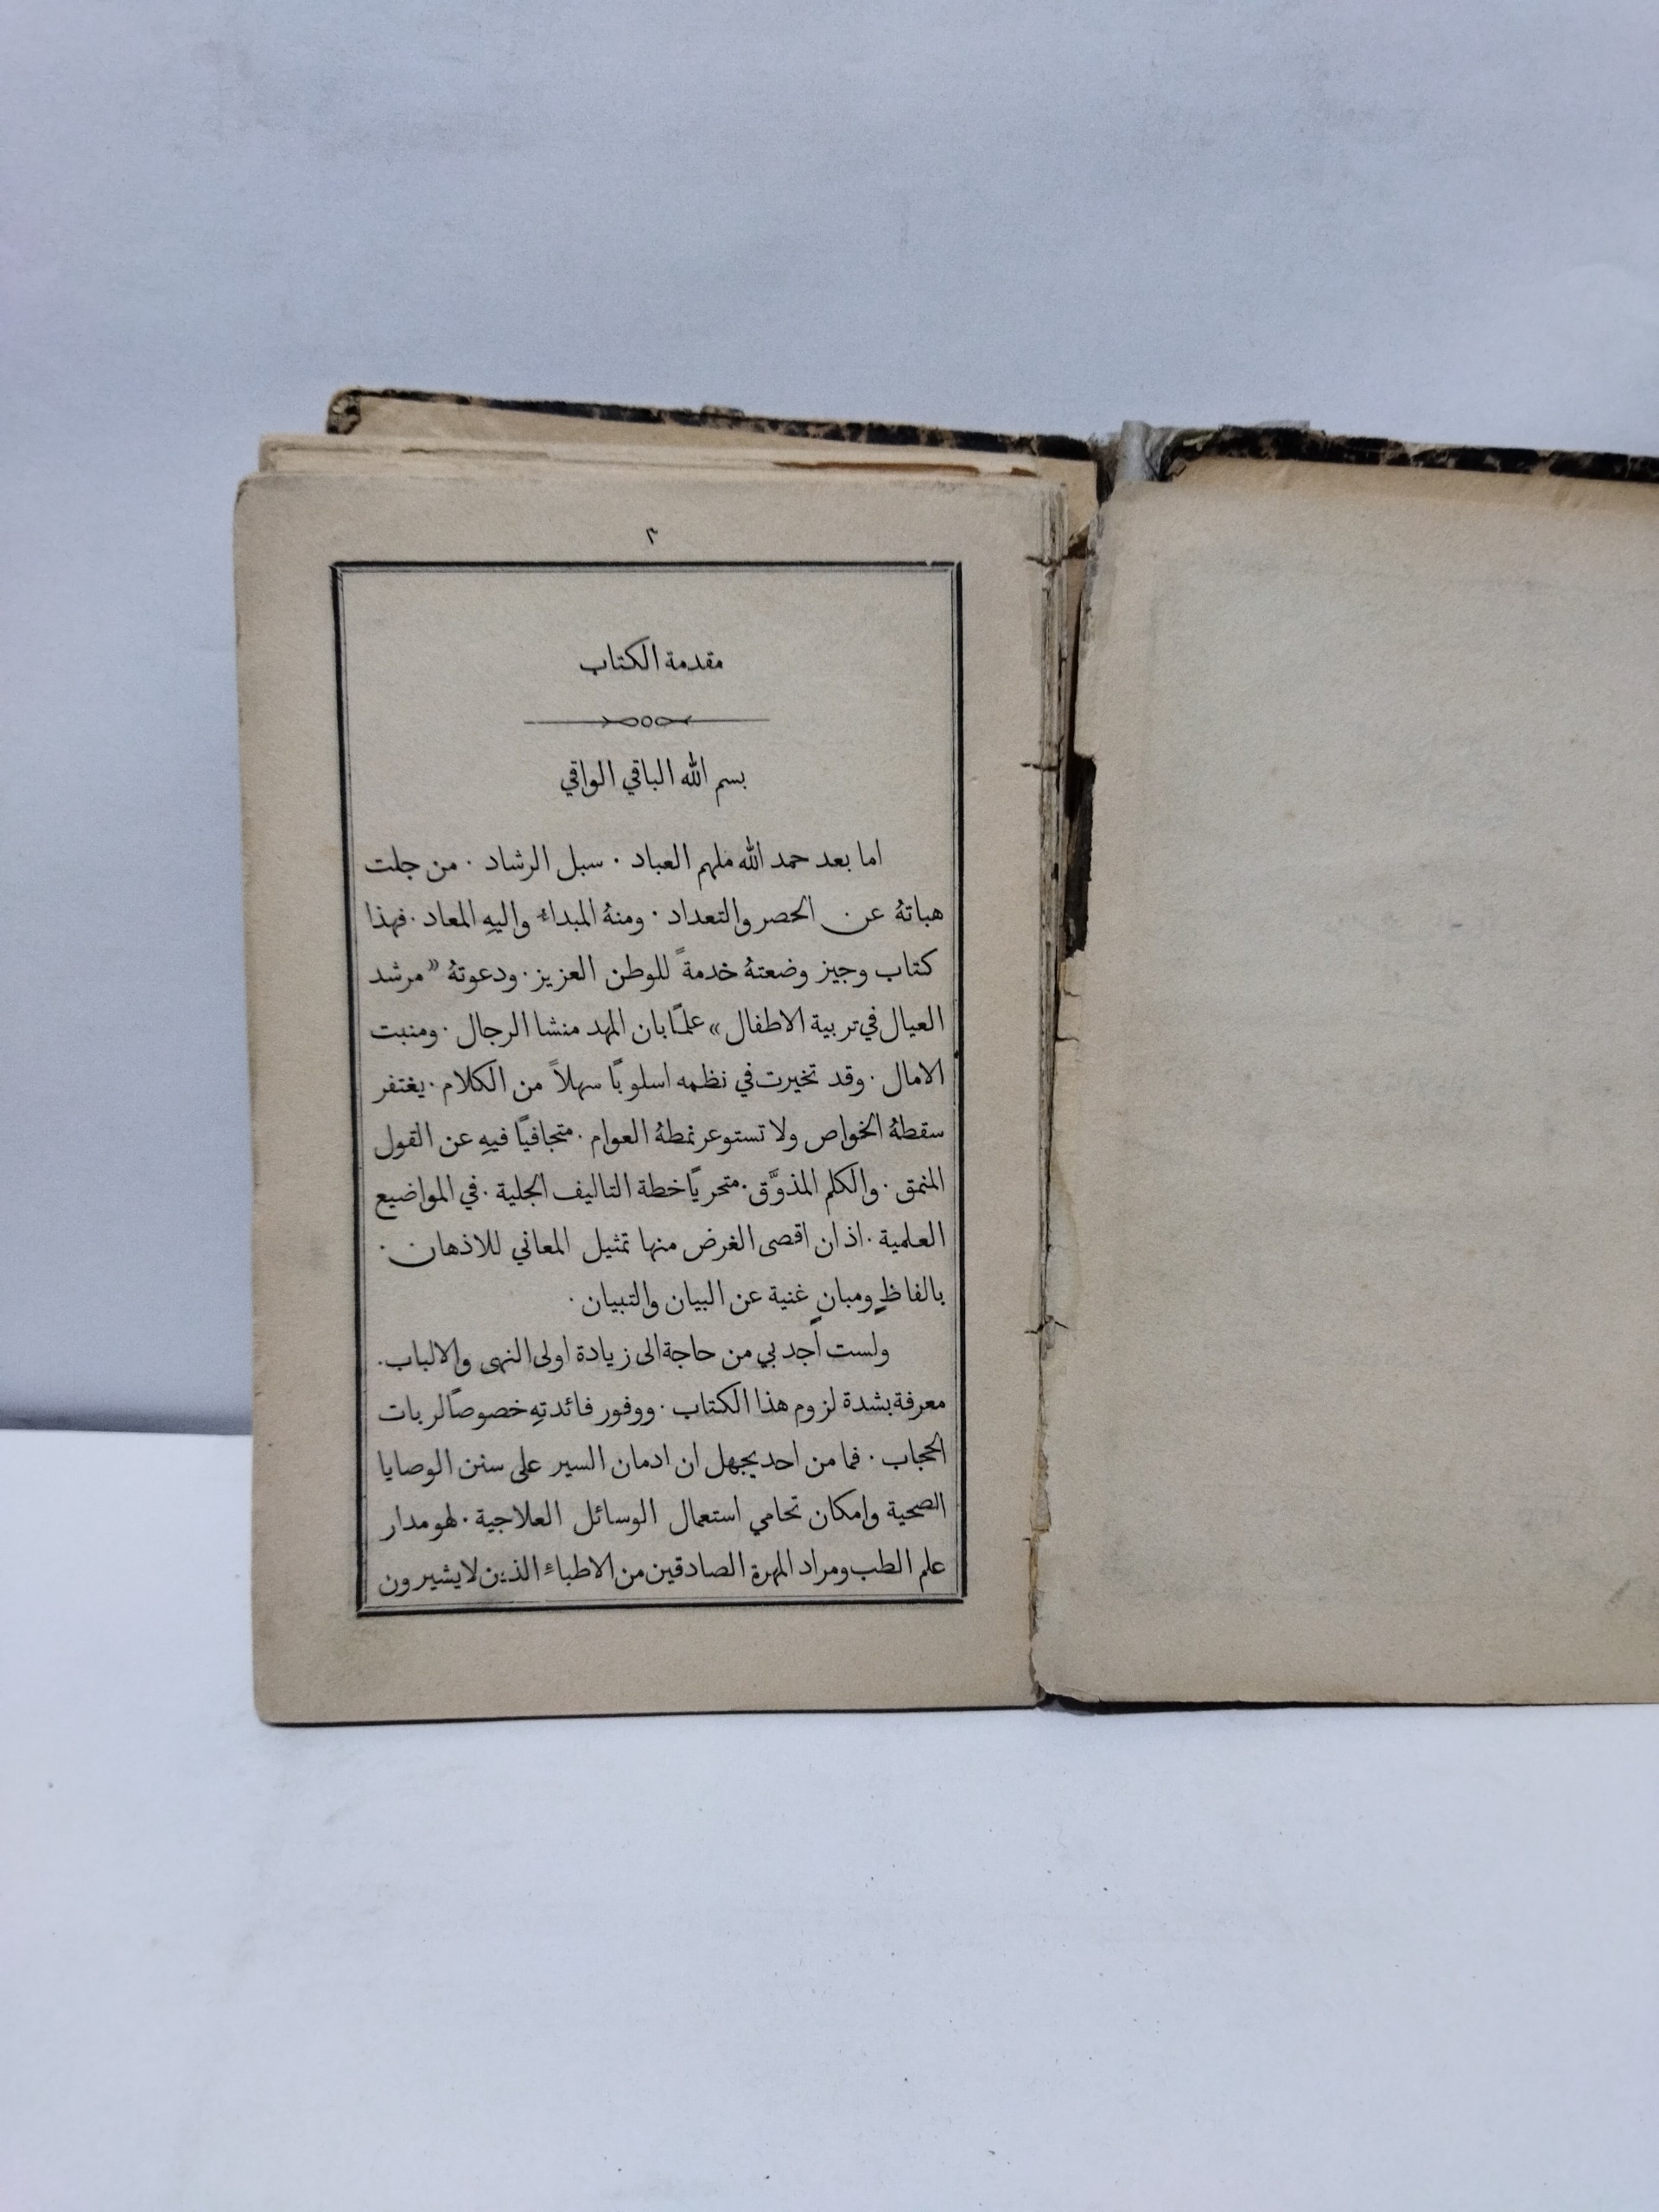 ٣
مقدمة الكتاب
بسم الله الباقي الواقي
اما بعد حمد الله ملهم العباد · سبل الرشاد · من جلت
هباتهُ عن الحصر والتعداد · ومنهُ المبداء واليهِ المعاد · فهذا
كتاب وجيز وضعتهُ خدمةً للوطن العزيز · ودعوتهُ «مرشد
العيال في تربية الاطفال» علمًا بان المهد منشا الرجال · ومنبت
الامال · وقد تخيرت في نظمه اسلوبًا سهلاً من الكلام · يغتفر
سقطهُ الخواص ولا تستوعر نمطهُ العوام · متجافيًا فيهِ عن القول
المنمق · والكلم المذوَّق · متحريًا خطة التاليف الجلية · في المواضيع
العلمية · اذ ان اقصى الغرض منها تمثيل المعاني للاذهان ·
بالفاظٍ ومبانٍ غنية عن البيان والتبيان ·
ولست اجد بي من حاجة الى زيادة اولى النهى والالباب ·
معرفة بشدة لزوم هذا الكتاب · ووفور فائدتهِ خصوصًا لربات
الحجاب · فما من احد يجهل ان ادمان السير على سنن الوصايا
الصحية وامكان تحامي استعمال الوسائل العلاجية · لهو مدار
علم الطب ومراد المهرة الصادقين من الاطباء الذين لا يشيرون